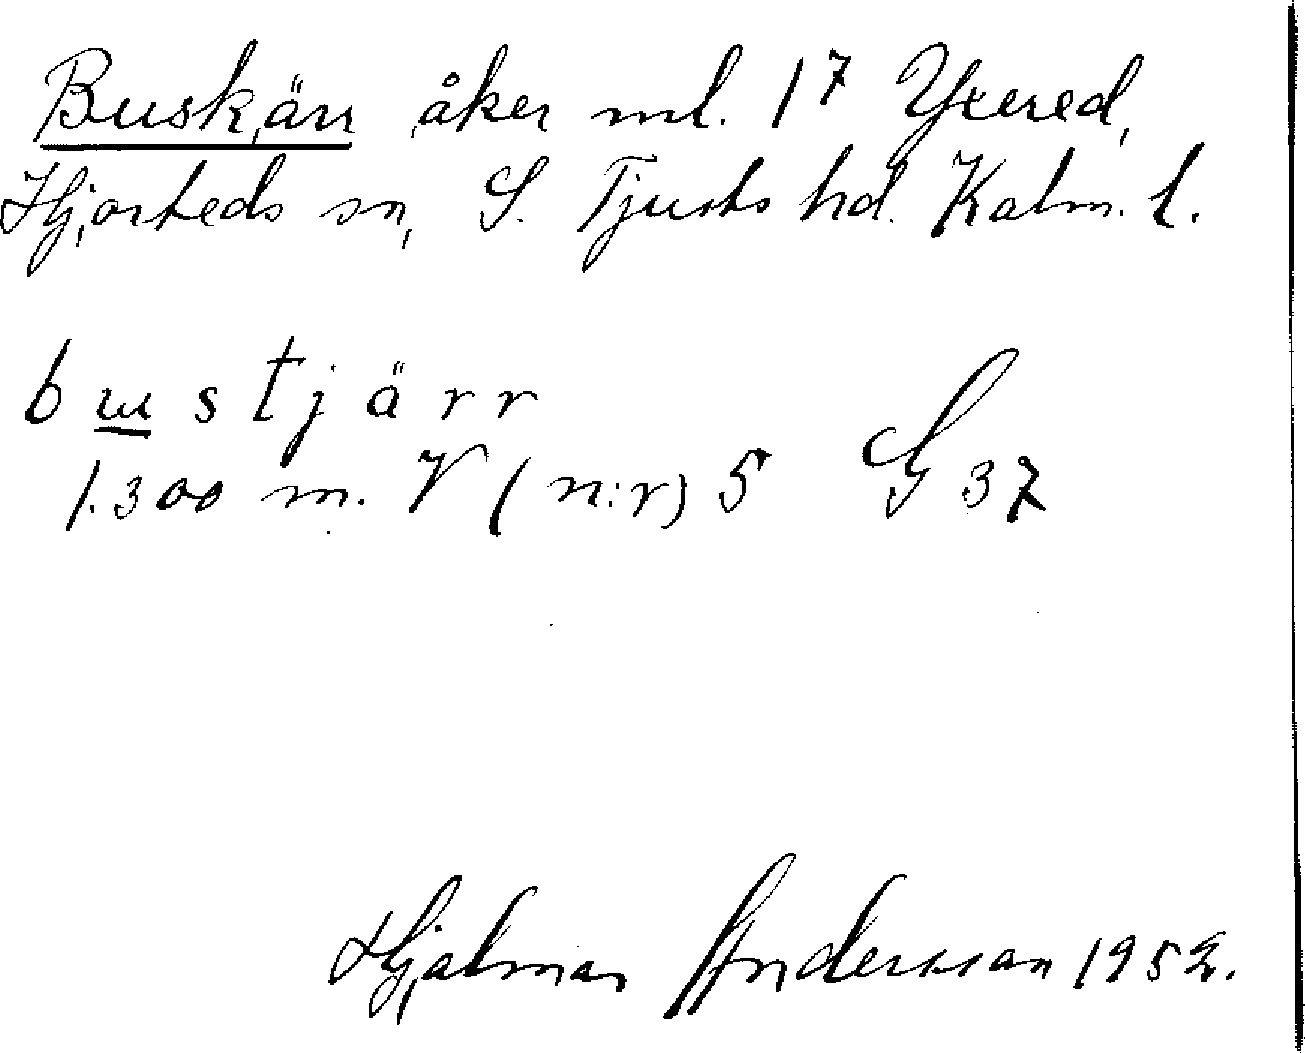 Buskärr åker ml. 17 Yxered,
Hjorteds sn, S. Tjusts hd. Kalm. l.
b u s t j ä r r
1.300 m. V (n:r) 5 G 37
Hjalmar Andersson 1952.